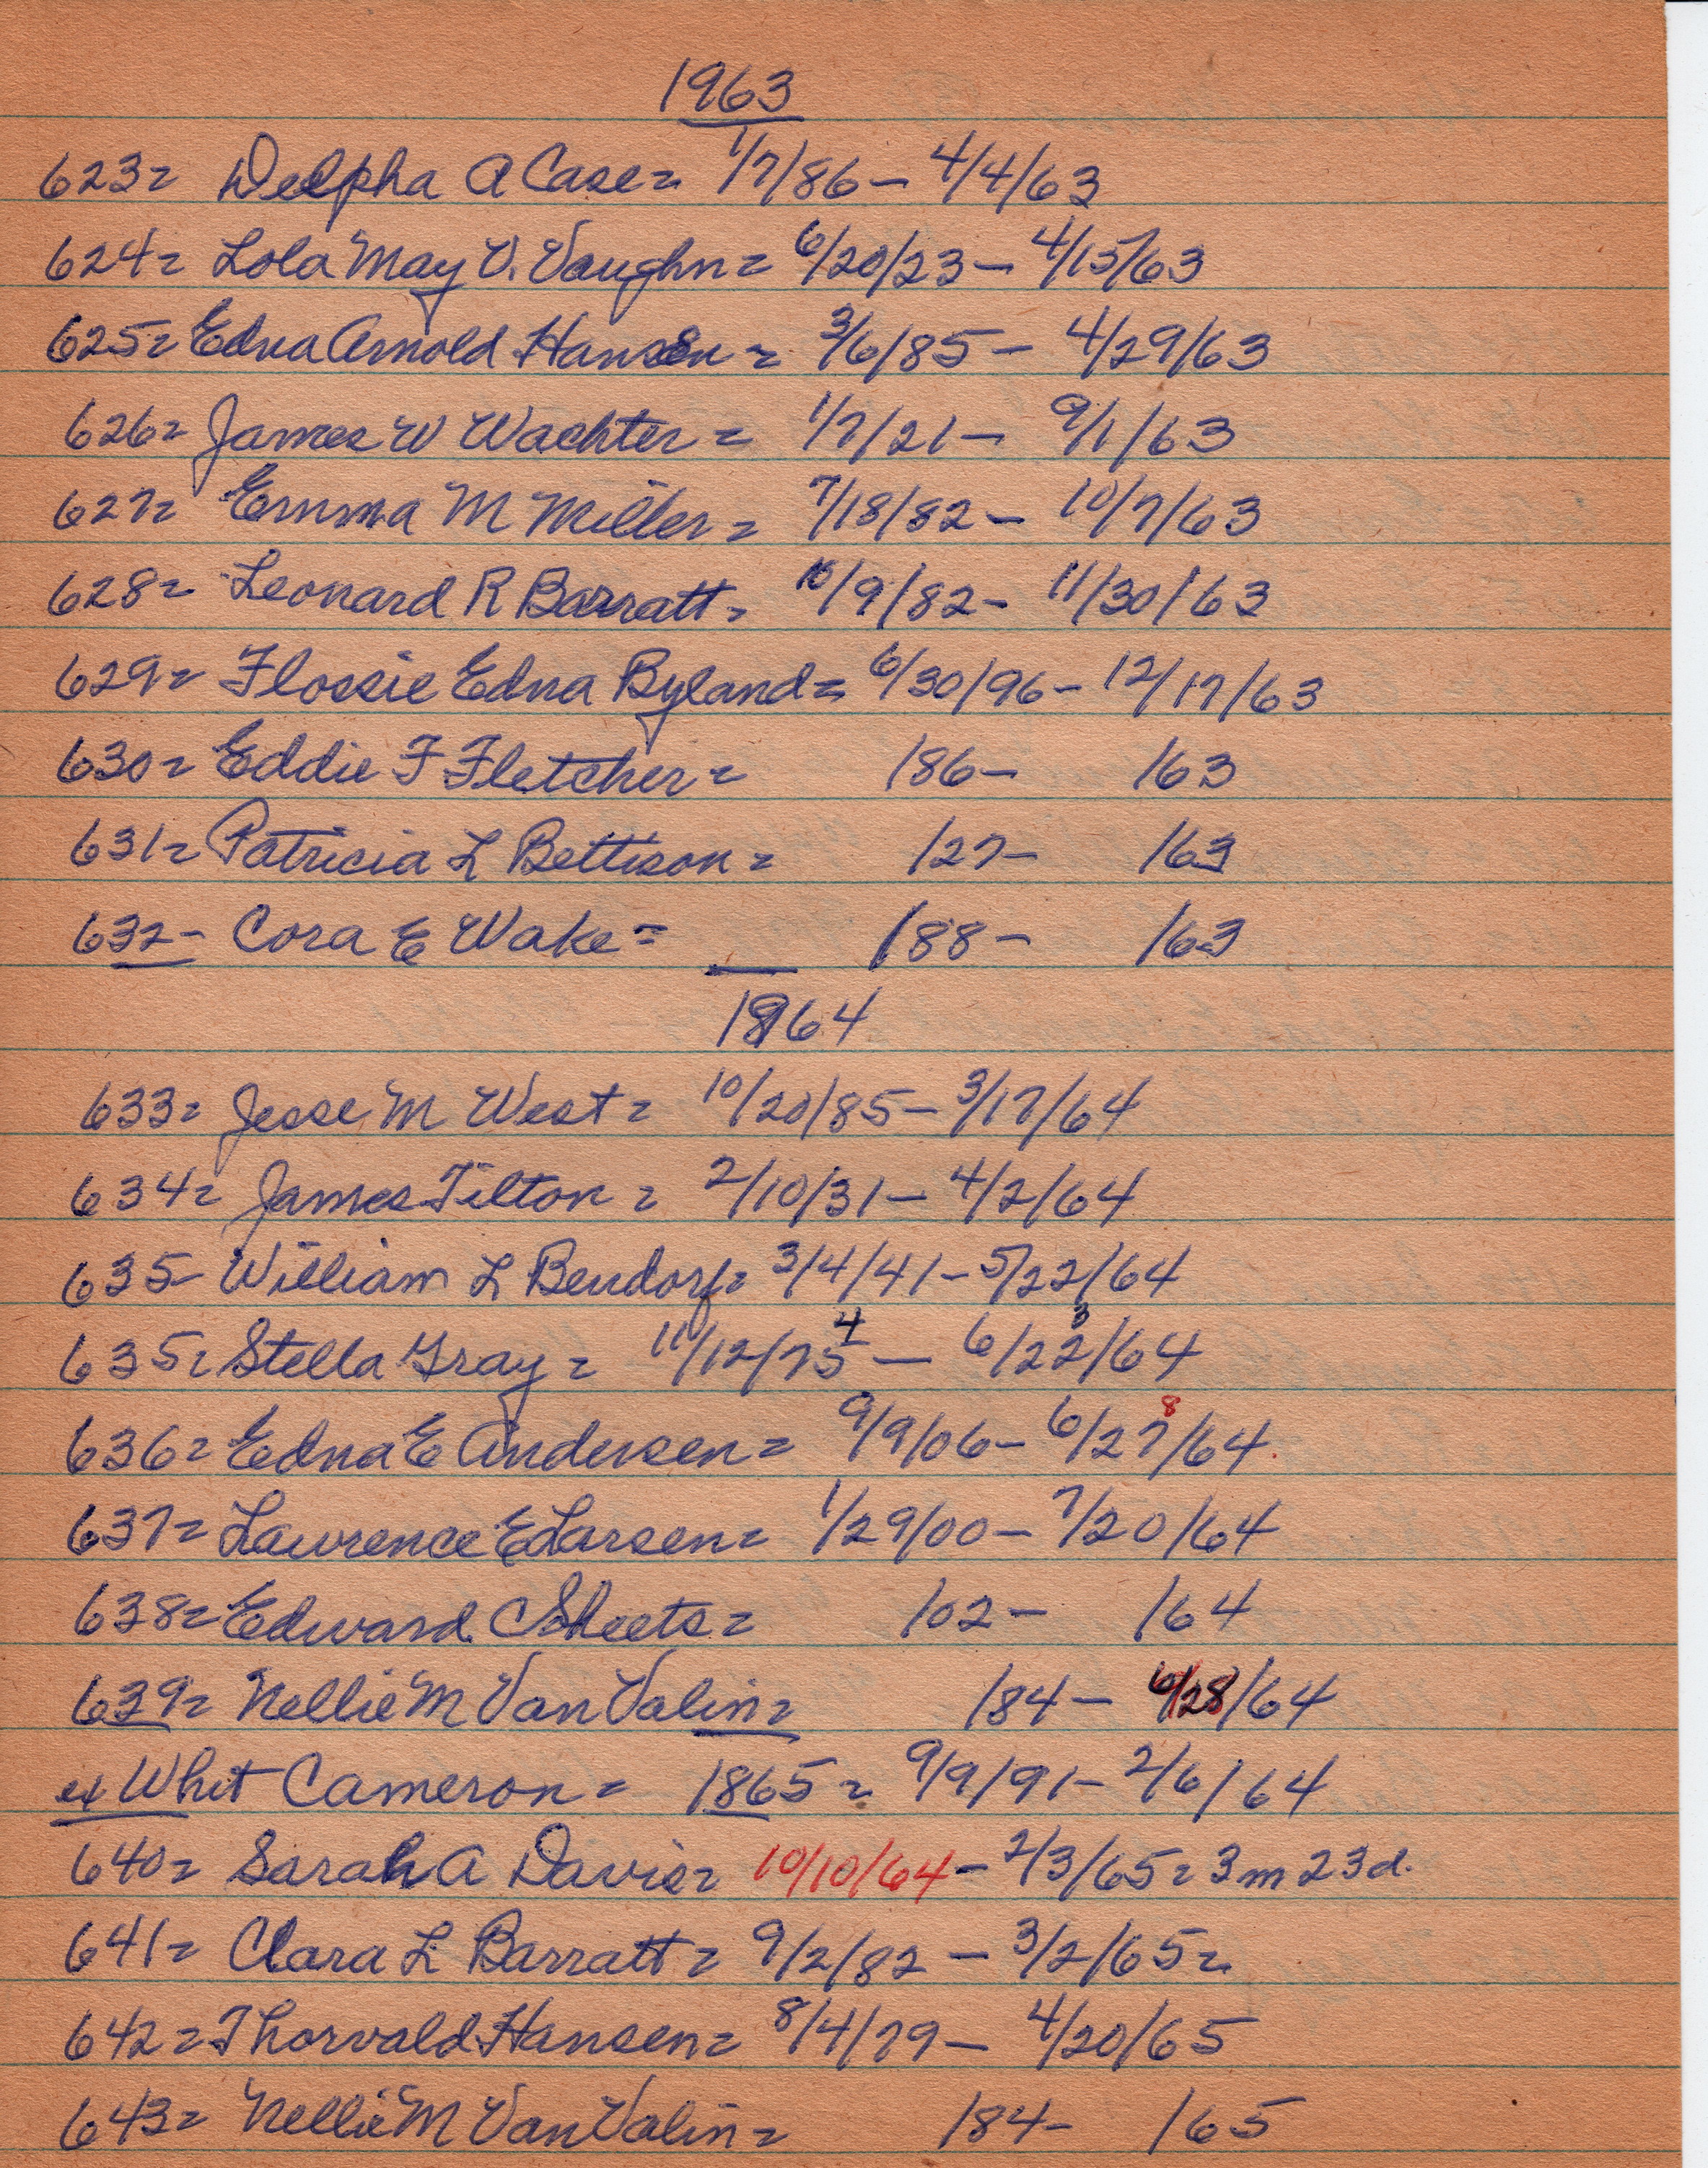 1963
623= Delpha A Case= 1/7/86 - 4/4/63
624= Lola May V. Vaughn= 6/20/23 - 4/15/63
625= Edna Arnold Hansen = 3/6/85 - 4/29/63
626= James W Wachter = 1/7/21 - 9/1/63
627= Emma M Miller = 7/18/82 - 10/7/63
628= Leonard R Barratt= 10/9/82 - 11/30/63
629= Flossie Edna Byland= 6/30/96 - 12/17/63
630= Eddie F Fletcher = /86 - /63
631= Patricia L Bettison= /27 - /63
632 - Cora E Wake = /88 - /63
1964
633= Jesse M West = 10/20/85 - 3/17/64
634= James Tilton = 2/10/31 - 4/2/64
635 - William L Bendorf= 3/4/41 - 5/22/64
635= Stella Gray = 11/12/75 4 - 6/22 3/64
636= Edna E Andersen= 9/9/06 - 6/27 8/64
637= Lawrence E Larsen= 1/29/00 - 7/20/64
638= Edward C Sheets= /02 - /64
639= Nellie M Van Valin= /84 - 6/28/64
ex Whit Cameron = 1865 = 9/9/91 - 2/6/64
640= Sarah A Davis= 10/10/64 - 2/3/65 = 3m 23d.
641= Clara L Barratt = 9/2/82 - 3/2/65 =
642 = Thorvald Hansen= 8/4/79 - 4/20/65
643= Nellie M Van Valin = /84 - /65